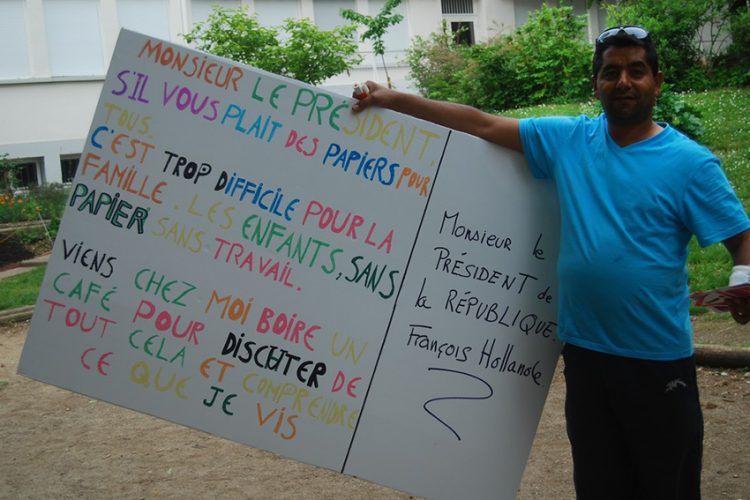 MONSIEUR LE PRÉSIDENT,
S'IL VOUS PLAIT DES PAPIERS POUR
TOUS.
C'EST TROP DIFFICILE POUR LA
FAMILLE. LES ENFANTS, SANS
PAPIER SANS TRAVAIL.
VIENS CHEZ MOI BOIRE UN
CAFÉ POUR DISCUTER DE
TOUT CELA ET COMPRENDRE
CE QUE JE VIS
Monsieur le
PRÉSIDENT de
la RÉPUBLIQUE.
François Hollande.